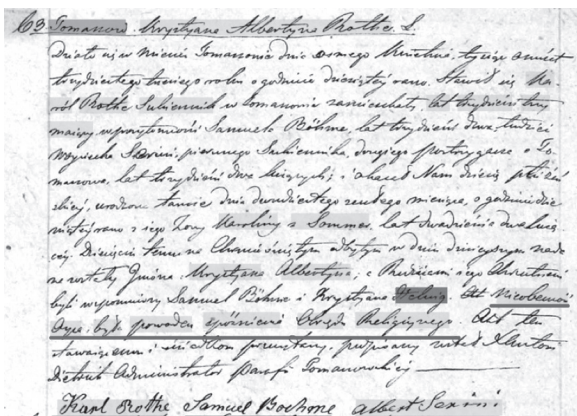 63 Tomaszów. Krystyana Albertyna Rothe L.
Działo się w Mieście Tomaszowie dnia ósmego Kwietnia, tysiąc ośmset
trzydziestego trzeciego roku o godzinie dziesiątej rano. Stawił się Ka-
ról Rothe Sukiennik w Tomaszowie zamieszkały, lat trzydzieści trzy
maiący w przytomności Samuela Böhme, lat trzydzieści dwa, tudzież
Woyciecha Serini, pierwszego Sukiennika, drugiego z To-
maszowa, lat trzydzieści dwa liczących; i okazał Nam dziecię płci żeń-
skiey, urodzone tamże dnia dwudziestego zeszłego miesiąca, o godzinie
rano z iego Żony Karoliny z Sommer, lat dwadzieścia dwa liczą-
cey. Dziecięciu temu na Chrzcie Świętym odbytym w dniu dzisieyszym nada-
ne zostały Imiona Krystyana Albertyna; a Rodzicami iego Chrzestnemi
byli wspomniony Samuel Böhme i Krystyana Helwig. Akt Nieobecność
Oyca; była powodem spóźnienia Obrzędu Religiynego. Akt ten
stawaiącemu i świadkom przeczytany, podpisany został
Administrator Parafii Tomaszowskiey
Karl Rothe Samuel Boehme Albert Serini